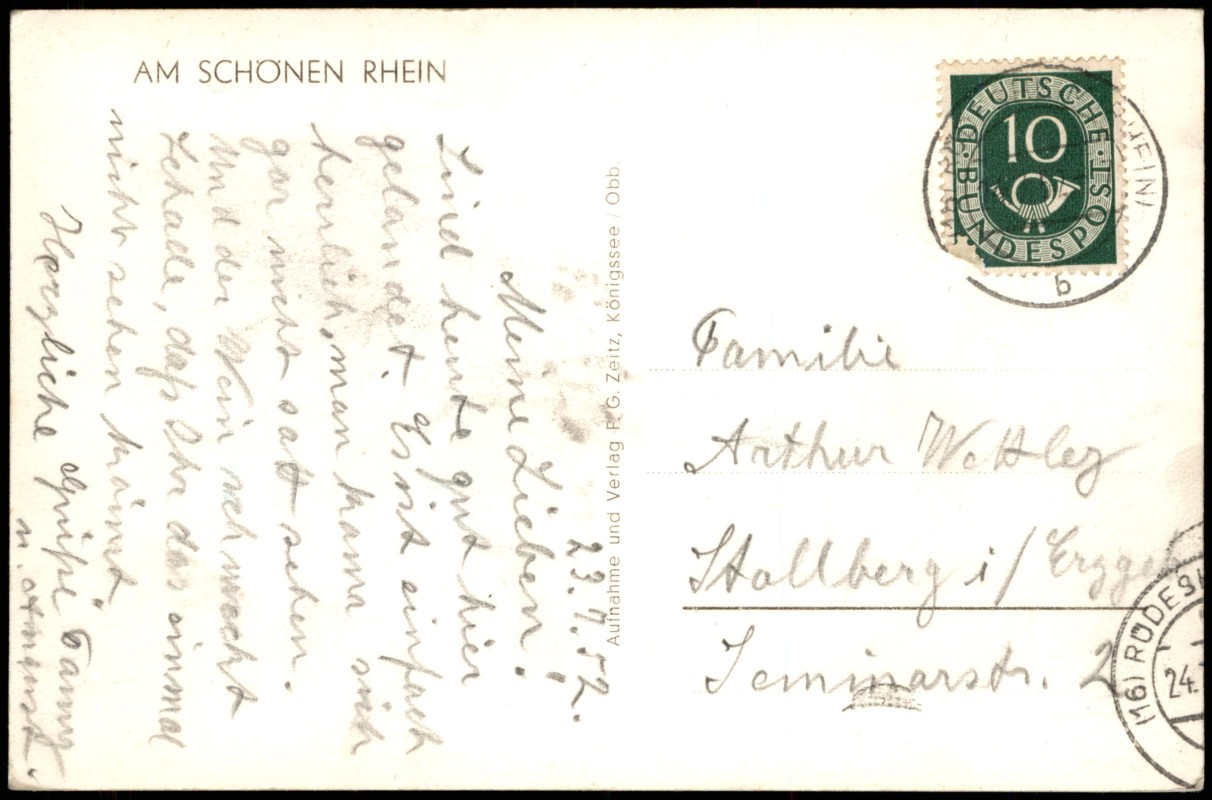 AM SCHÖNEN RHEIN
23.7.52.
Meine Lieben!
Sind heute gut hier
gelandet. Es ist einfach
herrlich, man kann sich
gar nicht satt sehen.
Und der Wein schmeckt
Schade, daß Ihr das einmal
nicht sehen könnt.
Herzliche Grüße Fanny
u. August.
Aufnahme und Verlag F. G. Zeitz, Königssee / Obb.
DEUTSCHE BUNDESPOST
10
b
Familie
Arthur
Stollberg i/ Erzgeb
Seminarstr. 2
(16) RÜDESH
24.